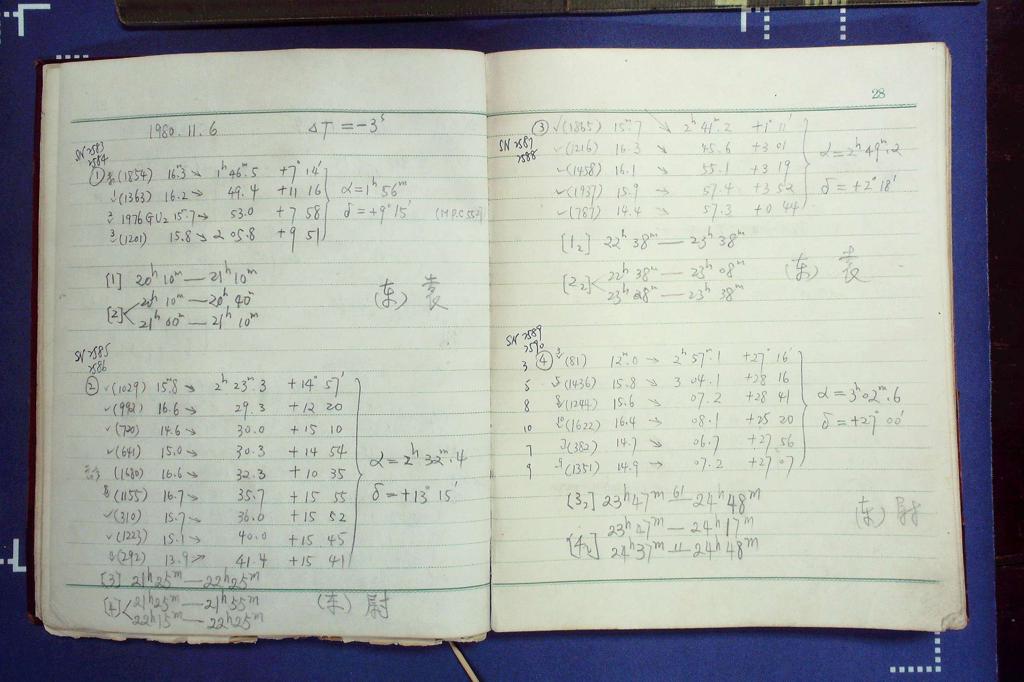 1980.11.6 ΔT = -3ˢ
SN 2583
2584
① (1854) 16ᵐ.3 → 1ʰ 46ᵐ.5 +7° 14′
(1363) 16.2 → 49.4 +11 16
1976GU₂ 15.7 → 53.0 +7 58 (M.P.C
(1201) 15.8 → 2 05.8 +9 51
α = 1ʰ 56ᵐ
δ = +9° 15′
[1] 20ʰ 10ᵐ — 21ʰ 10ᵐ
[2] 20ʰ 10ᵐ — 20ʰ 40ᵐ
21ʰ 00ᵐ — 21ʰ 10ᵐ
(东) 袁
SN 2585
2586
② ✓(1029) 15ᵐ.8 → 2ʰ 23ᵐ.3 +14° 57′
✓(992) 16.6 → 29.3 +12 20
✓(720) 14.6 → 30.0 +15 10
✓(641) 15.0 → 30.3 +14 54
(1680) 16.6 → 32.3 +10 35
(1155) 16.7 → 35.7 +15 55
✓(310) 15.7 → 36.0 +15 52
✓(1223) 15.1 → 40.0 +15 45
(292) 13.9 → 41.4 +15 41
α = 2ʰ 32ᵐ.4
δ = +13° 15′
[3] 21ʰ 25ᵐ — 22ʰ 25ᵐ
[4] 21ʰ 25ᵐ — 21ʰ 55ᵐ
22ʰ 15ᵐ — 22ʰ 25ᵐ
(东) 尉
28
SN 2587
2588
③ ✓(1865) 15ᵐ.7 → 2ʰ 41ᵐ.2 +1° 11′
✓(1216) 16.3 → 45.6 +3 01
✓(1458) 16.1 → 55.1 +3 19
✓(1937) 15.9 → 57.4 +3 52
✓(787) 14.4 → 57.3 +0 44
α = 2ʰ 49ᵐ.2
δ = +2° 18′
[1₂] 22ʰ 38ᵐ — 23ʰ 38ᵐ
[2₂] 22ʰ 38ᵐ — 23ʰ 08ᵐ
23ʰ 28ᵐ — 23ʰ 38ᵐ
(东) 袁
SN 2589
2590
3 ④ (81) 12ᵐ.0 → 2ʰ 57ᵐ.1 +27° 16′
5 (1436) 15.8 → 3 04.1 +28 16
8 (1244) 15.6 → 07.2 +28 41
10 (1622) 16.4 → 08.1 +25 20
7 (382) 14.7 → 06.7 +27 56
9 (1351) 14.9 → 07.2 +27 07
α = 3ʰ 02ᵐ.6
δ = +27° 00′
[3₂] 23ʰ 47ᵐ — 61 — 24ʰ 48ᵐ
[4₂] 23ʰ 47ᵐ — 24ʰ 17ᵐ
24ʰ 37ᵐ — 11 — 24ʰ 48ᵐ
(东) 尉